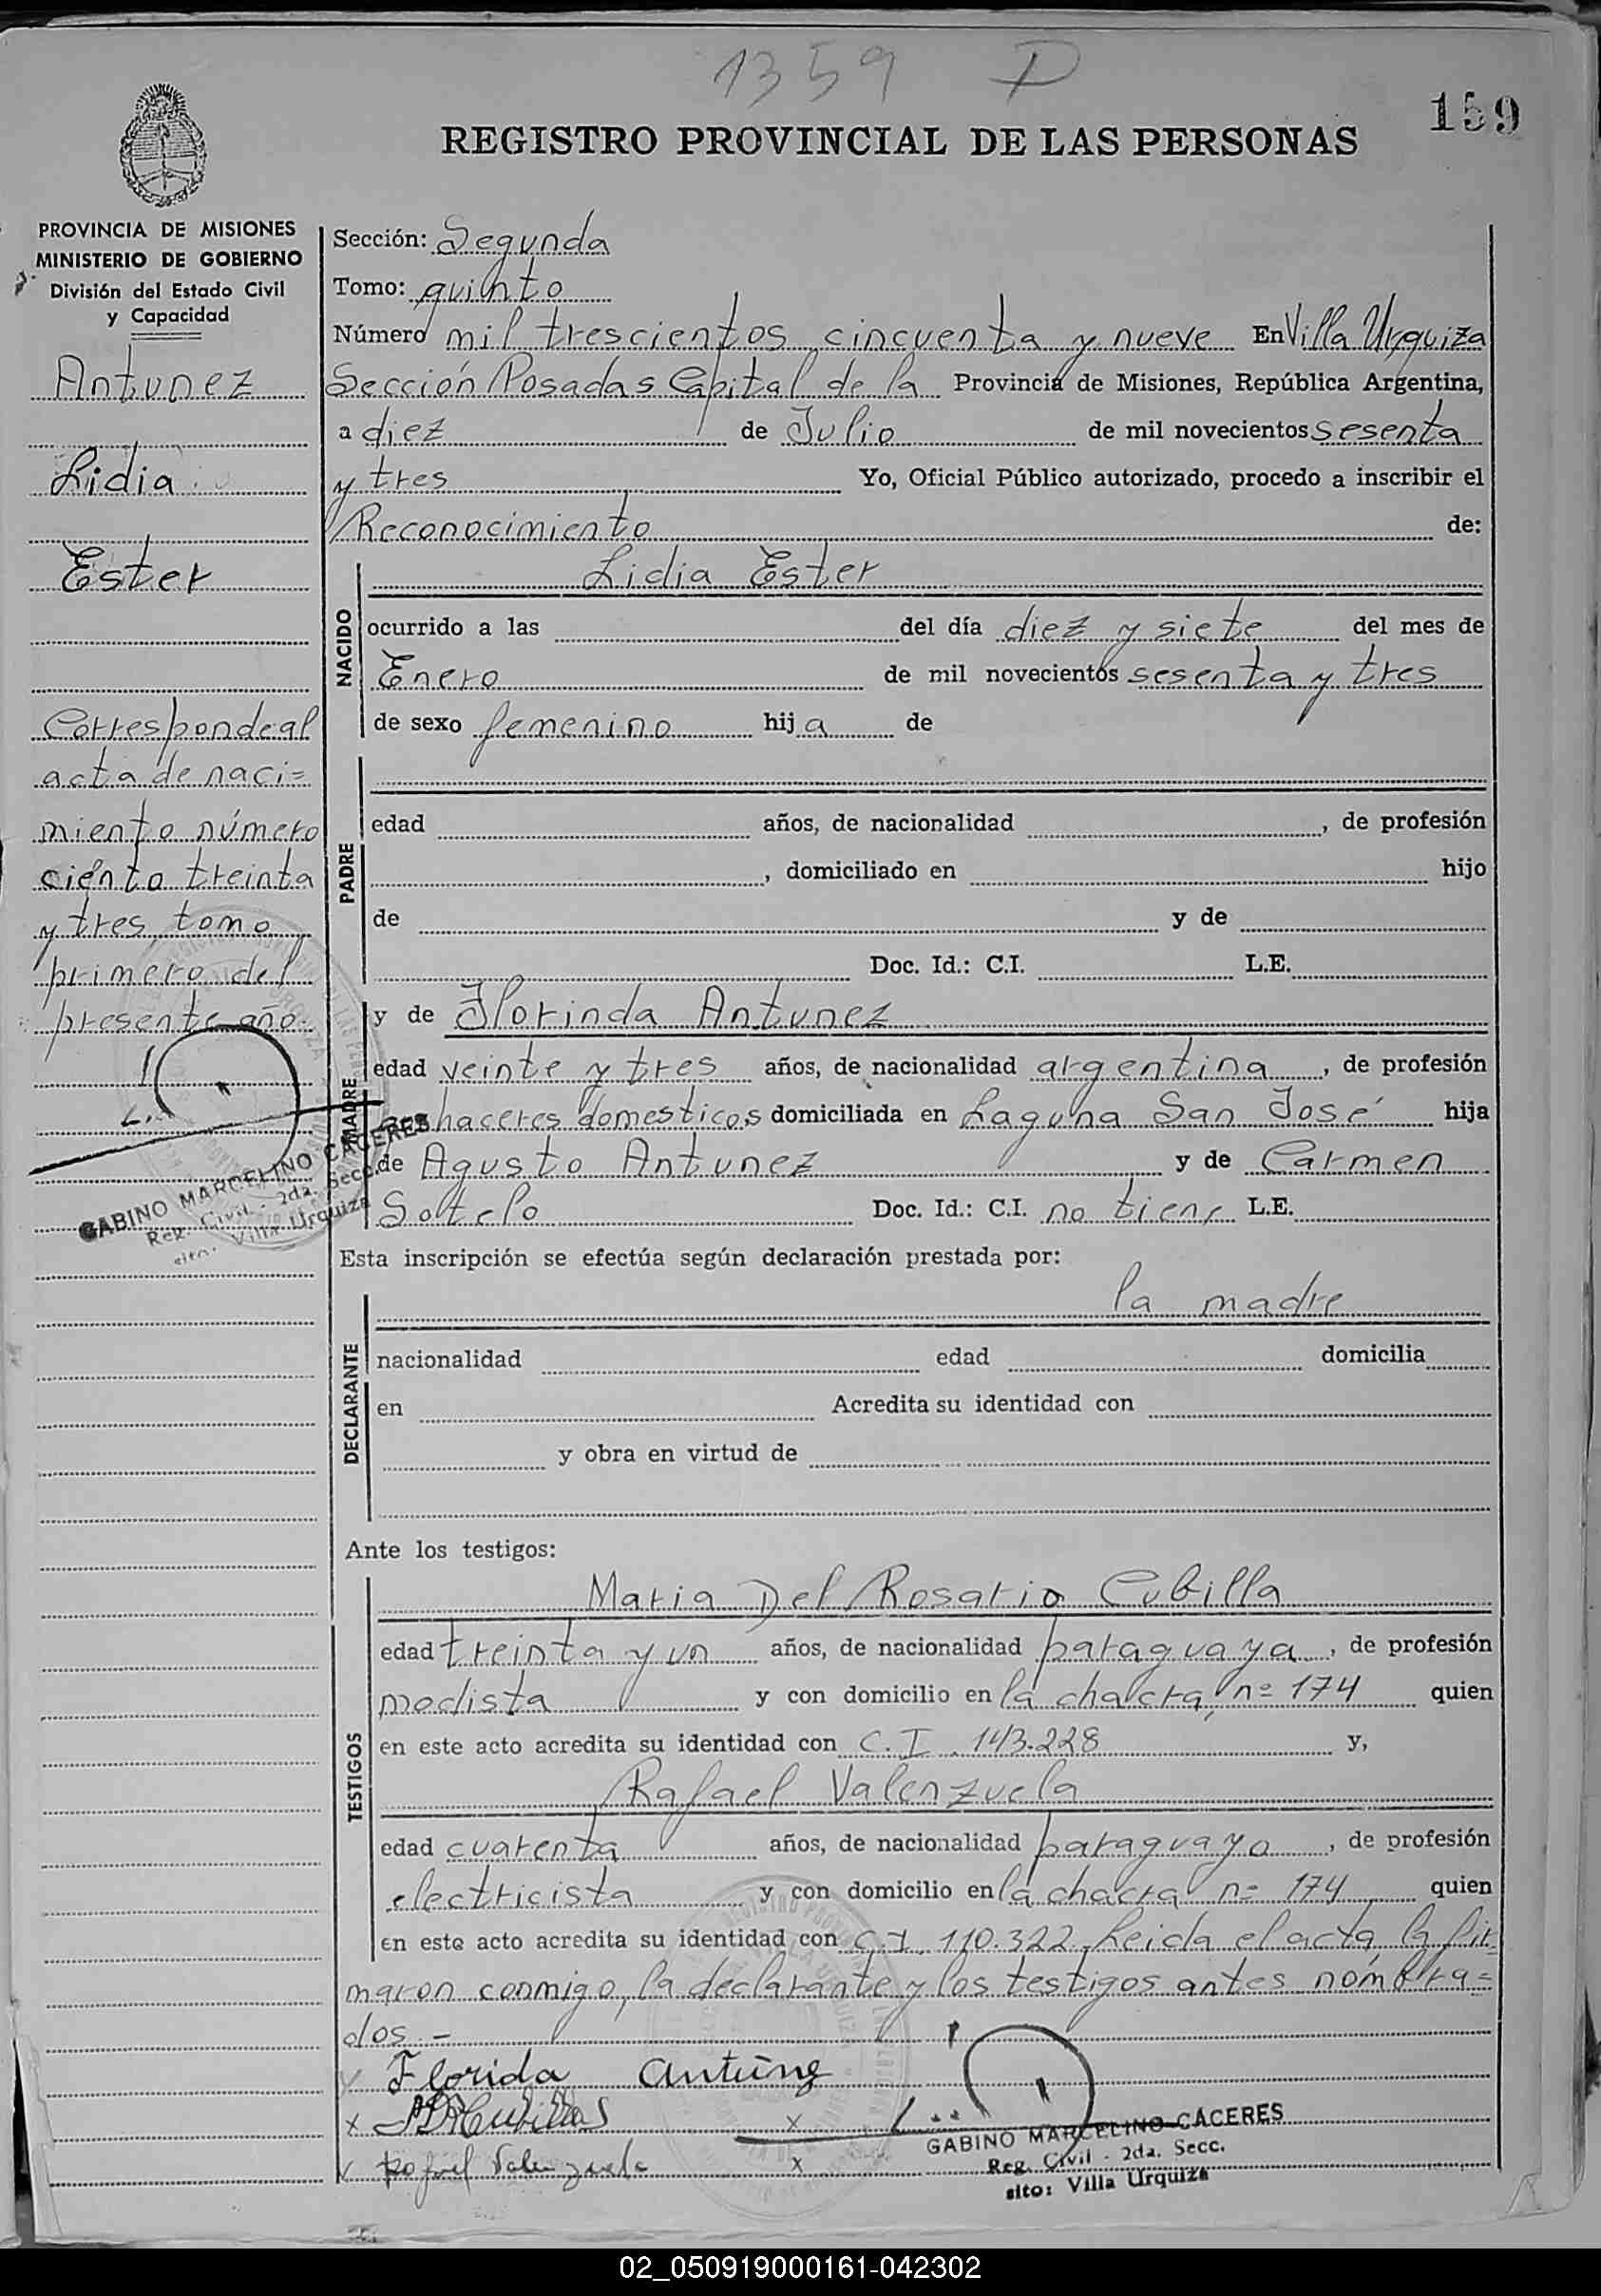 1359 D
159
REGISTRO PROVINCIAL DE LAS PERSONAS
PROVINCIA DE MISIONES
MINISTERIO DE GOBIERNO
División del Estado Civil
y Capacidad
Antunez
Lidia
Ester
Corresponde al
acta de naci=
miento número
ciento treinta
y tres, tomo
primero del
presente año.
GABINO MARCELINO CÁCERES
Reg. Civil - 2da. Secc.
sito: Villa Urquiza
Sección: Segunda
Tomo: quinto
Número mil trescientos cincuenta y nueve En Villa Urquiza
Sección Posadas Capital de la Provincia de Misiones, República Argentina,
a diez de Julio de mil novecientos sesenta
y tres Yo, Oficial Público autorizado, procedo a inscribir el
Reconocimiento de:
NACIDO
Lidia Ester
ocurrido a las del día diez y siete del mes de
Enero de mil novecientos sesenta y tres
de sexo femenino hija de
PADRE
edad años, de nacionalidad , de profesión
, domiciliado en hijo
de y de
Doc. Id.: C.I. L.E.
MADRE
y de Florinda Antunez
edad veinte y tres años, de nacionalidad argentina, de profesión
haceres domesticos domiciliada en Laguna San José hija
de Agusto Antunez y de Carmen
Sotelo Doc. Id.: C.I. no tiene L.E.
Esta inscripción se efectúa según declaración prestada por:
DECLARANTE
la madre
nacionalidad edad domicilia
en Acredita su identidad con
y obra en virtud de
Ante los testigos:
TESTIGOS
Maria Del Rosario Cubilla
edad treinta y un años, de nacionalidad paraguaya, de profesión
modista y con domicilio en la chacra nº 174 quien
en este acto acredita su identidad con C.I. 143.228 y,
Rafael Valenzuela
edad cuarenta años, de nacionalidad paraguayo, de profesión
electricista y con domicilio en la chacra nº 174 quien
en este acto acredita su identidad con C.I. 110.322 Leida el acta, la fir=
maron conmigo, la declarante y los testigos antes nombra=
dos.-
Florida Antúnez
x Cubillas x
Rafael Valenzuela x
GABINO MARCELINO CÁCERES
Reg. Civil - 2da. Secc.
sito: Villa Urquiza
02_050919000161-042302